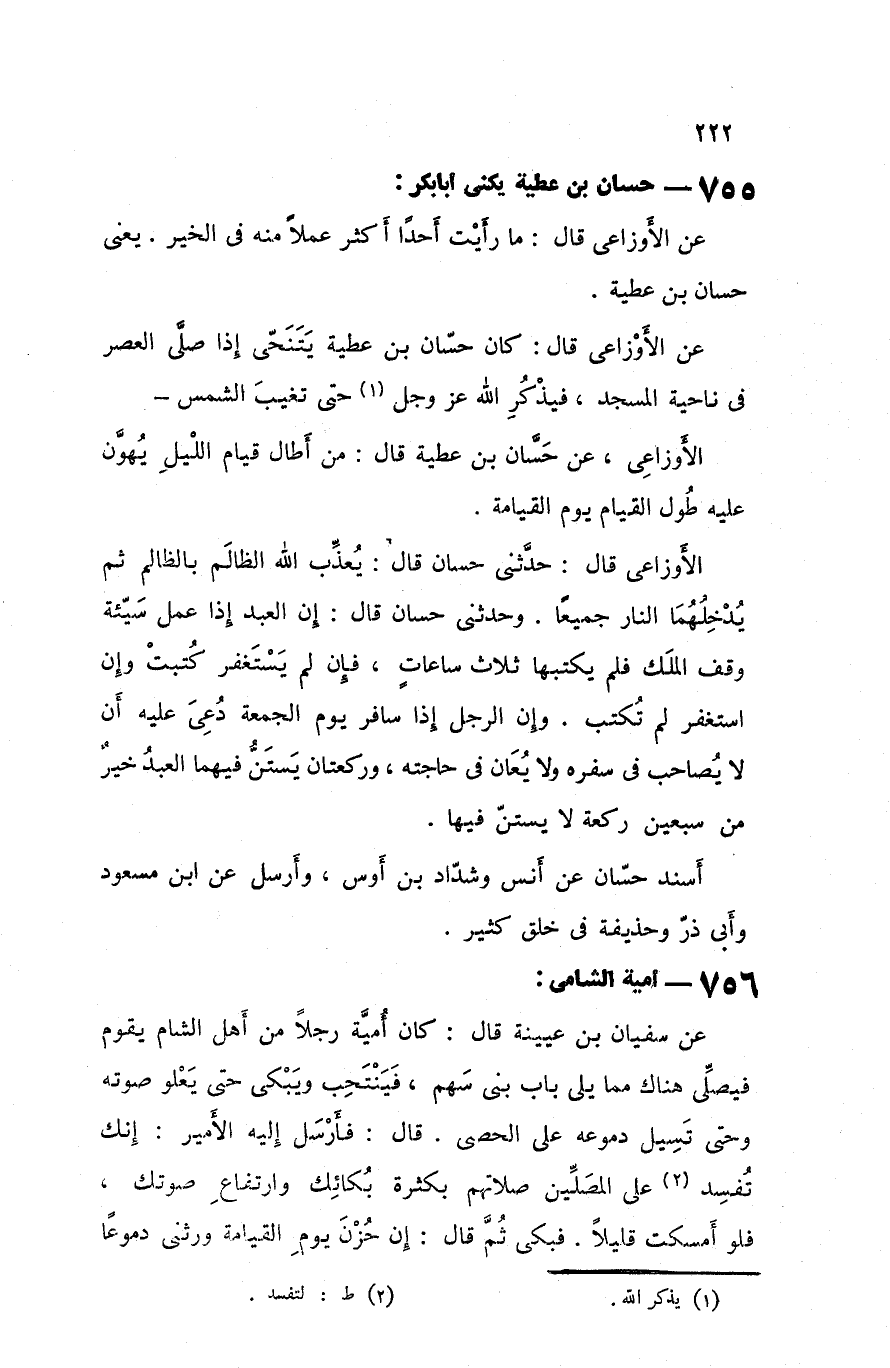 ٢٢٢
٧٥٥ — حسان بن عطية يكنى أبابكر :
عن الأَوزاعى قال : ما رأَيْت أَحدًا أَكثر عملاً منه فى الخير . يعنى
حسان بن عطية .
عن الأَوْزاعى قال : كان حسّان بن عطية يَتَنَحّى إِذا صلَّى العصر
فى ناحية المسجد ، فيذْكُرِ الله عز وجل (١) حتى تغيبَ الشمس –
الأَوزاعِى ، عن حَسَّان بن عطية قال : من أَطال قيام الليْلِ يُهوَّن
عليه طُول القيام يوم القيامة .
الأَوزاعى قال : حدَّثنى حسان قال : يُعذِّب الله الظالَم بالظالم ثم
يُدْخِلُهُمَا النار جميعًا . وحدثنى حسان قال : إِن العبد إِذا عمل سَيّئة
وقف الملَك فلم يكتبها ثلاث ساعاتٍ ، فإِن لم يَسْتَغفر كُتبتْ وإِن
استغفر لم تُكتب . وإِن الرجل إِذا سافر يوم الجمعة دُعِىَ عليه أَن
لا يُصاحب فى سفره ولا يُعَان فى حاجته ، وركعتان يَستَنُّ فيهما العبدُ خيرٌ
من سبعين ركعة لا يستنّ فيها .
أَسند حسّان عن أَنس وشدّاد بن أَوس ، وأَرسل عن ابن مسعود
وأَبى ذرّ وحذيفة فى خلق كثير .
٧٥٦ — أمية الشامى :
عن سفيان بن عيينة قال : كان أُميَّة رجلاً من أَهل الشام يقوم
فيصلِّى هناك مما يلى باب بنى سَهم ، فَيَنْتَحِب ويَبْكى حتى يَعْلو صوته
وحتى تَسِيل دموعه على الحصى . قال : فأَرْسَل إِليه الأَمير : إِنك
تُفسِد (٢) على المصَلِّين صلاتهم بكثرة بُكائِك وارتفاعِ صوتك ،
فلو أَمسكت قليلاً . فبكى ثُمَّ قال : إِن حُزْنَ يومِ القيامة ورثنى دموعًا
(١) يذكر الله .
(٢) ط : لتفسد .